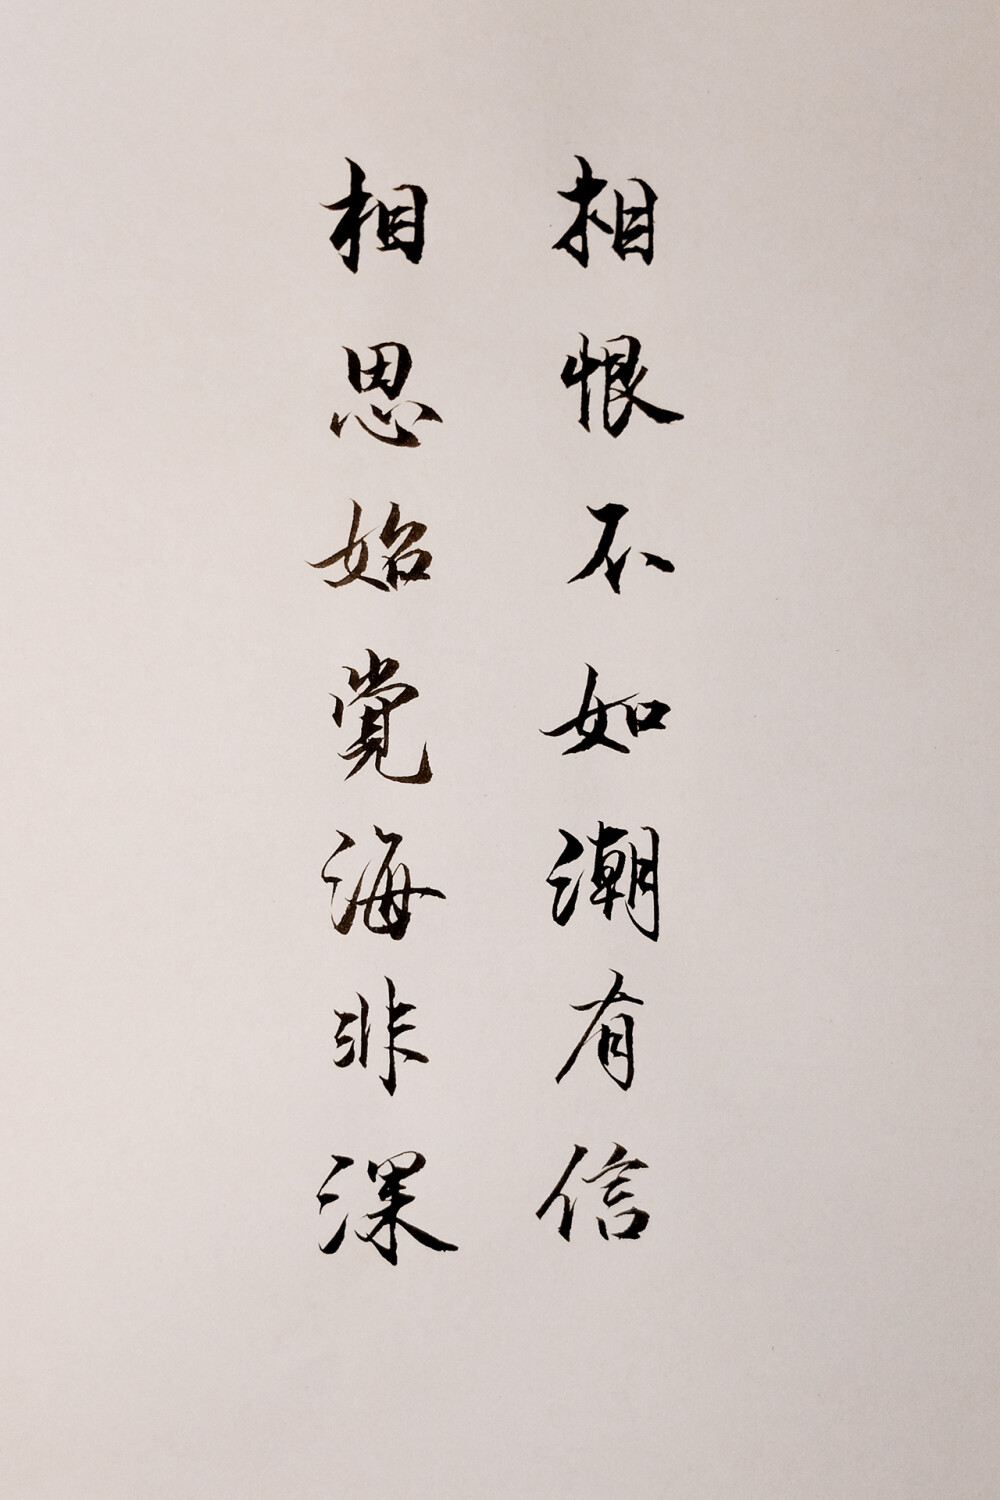 相恨不如潮有信
相思始覺海非深